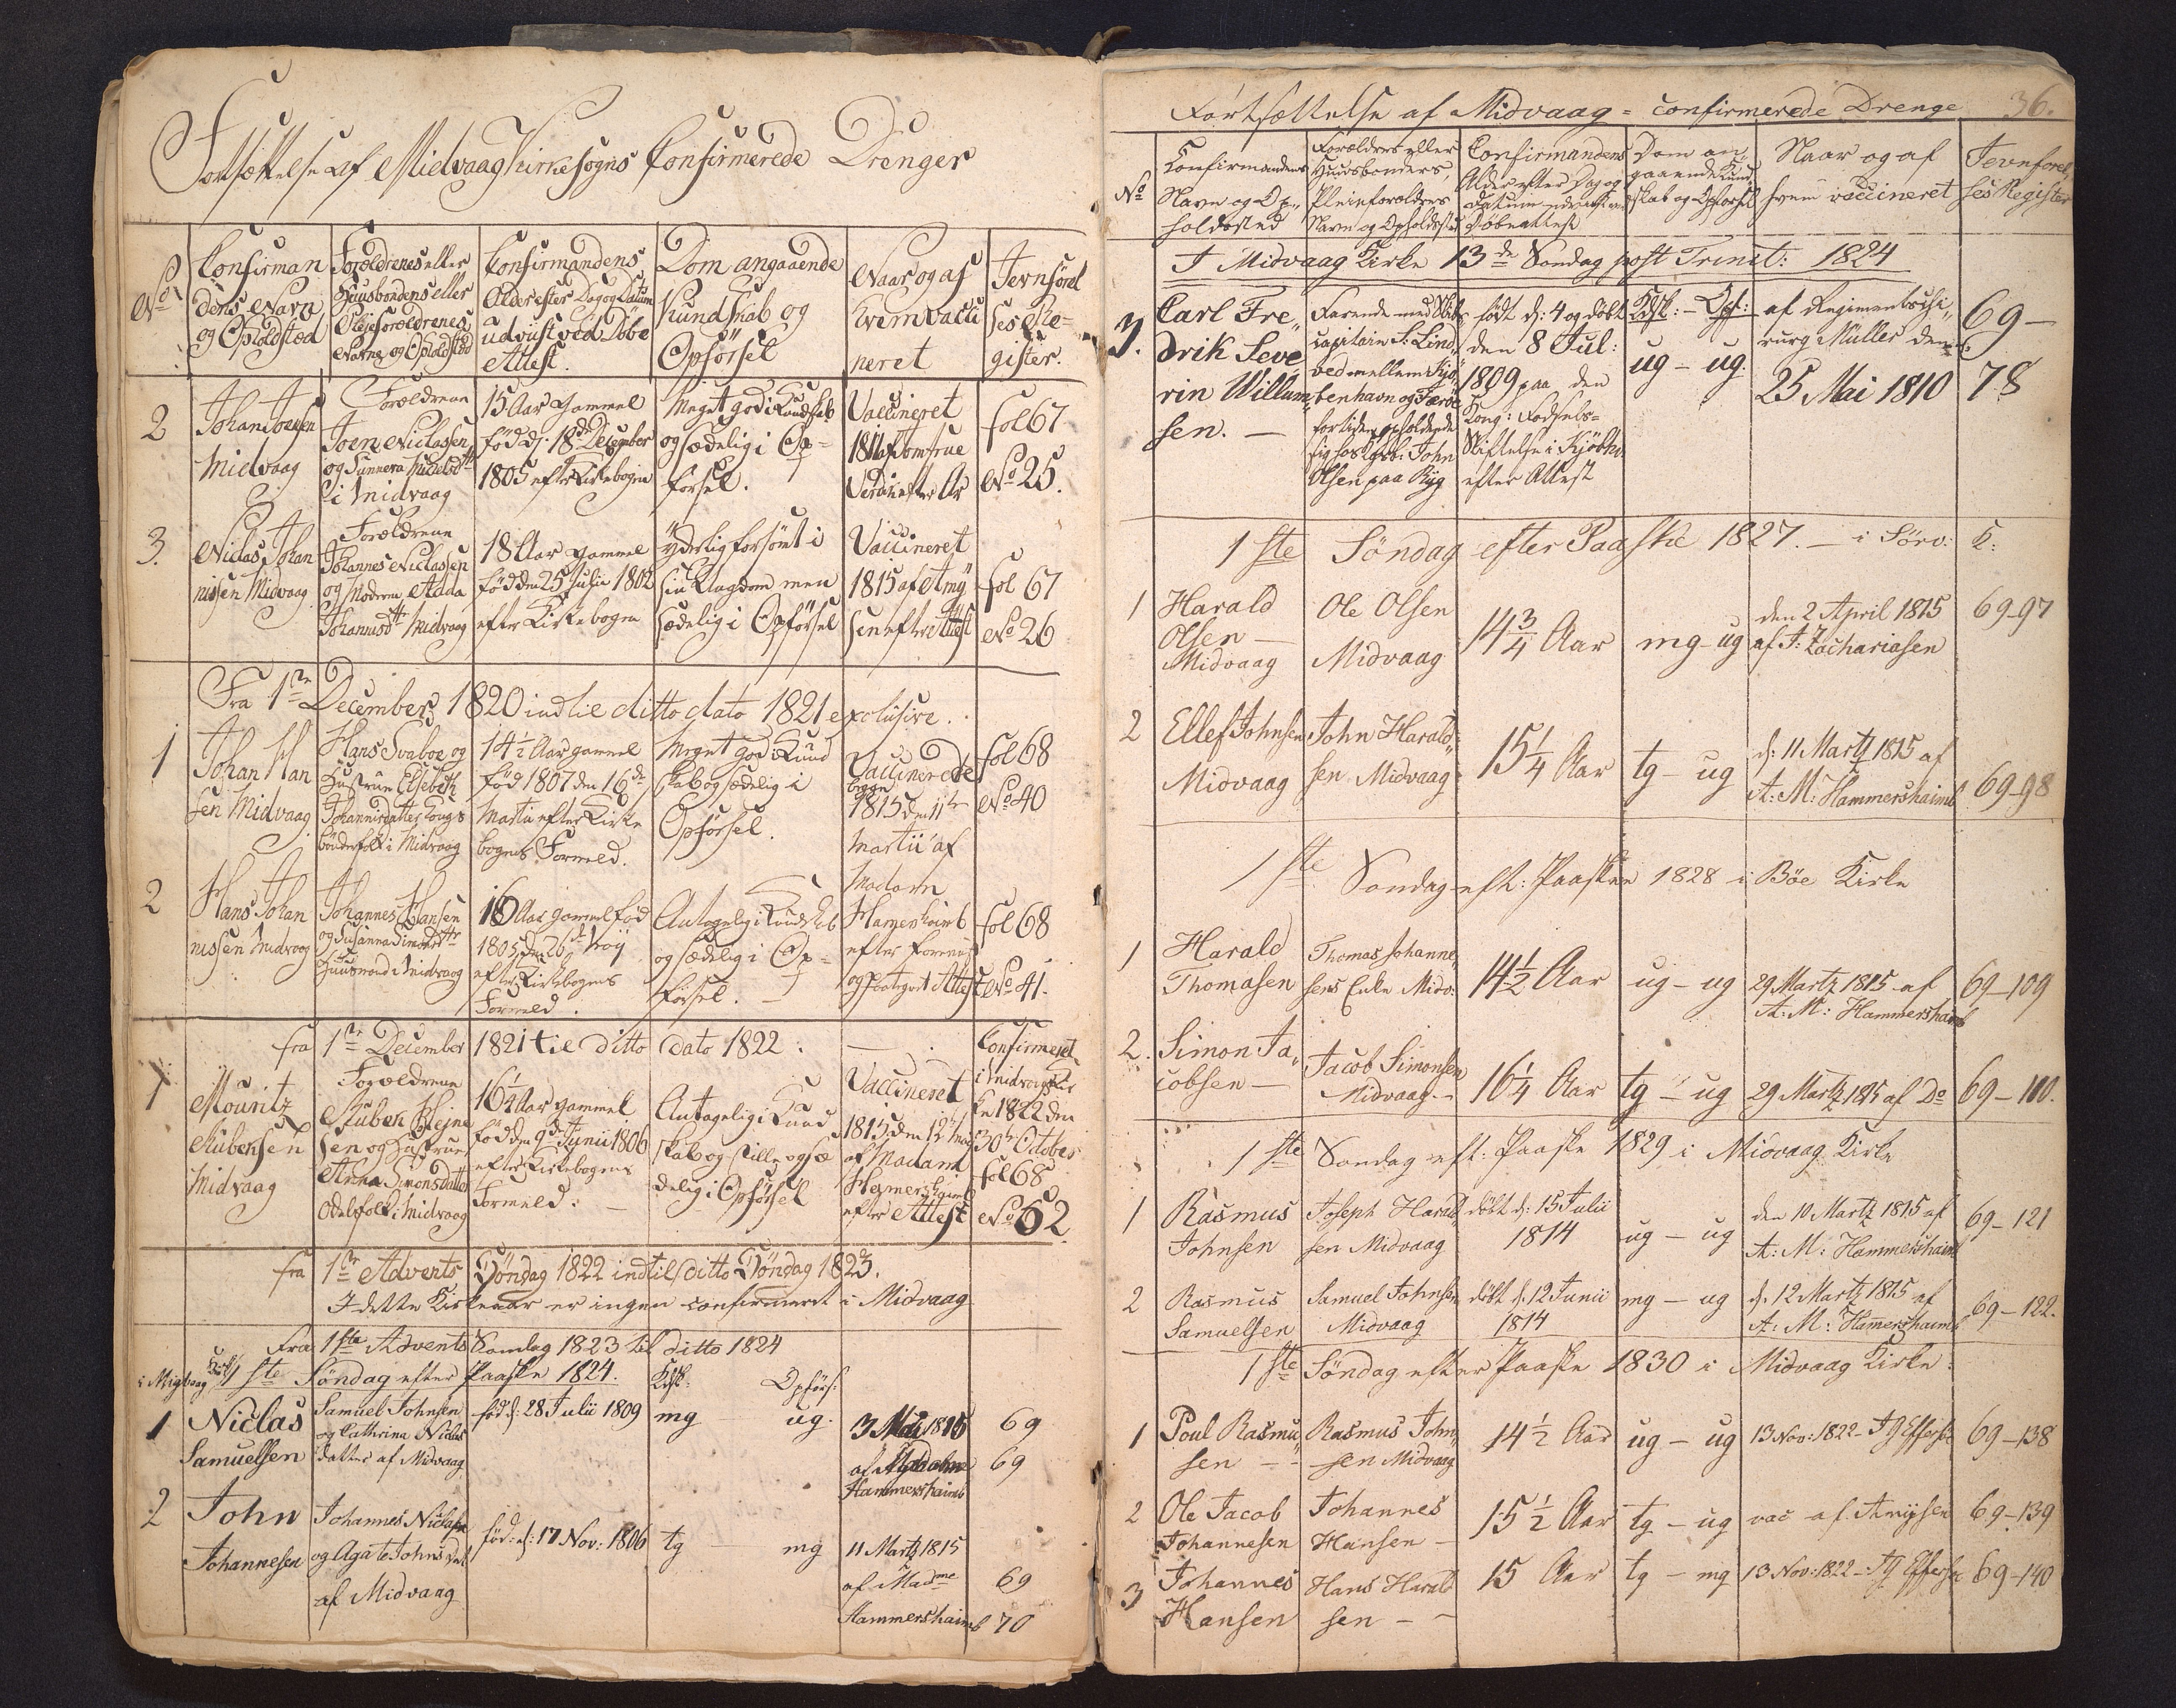 Fortsættelse af Midvaag Kirkesogns Confirmerede Drenger
No
Confirman
dens Navn
og Opholdsted
Forældrenes eller
Huusbondens eller
Pleieforældrenes
Navne og Opholdsted
Confirmandens
Alder efter Dag og Datum
udviist ved Døbe
Attest.
Dom angaaende
Kundskab og
Opførsel
Naar og af
hvem vacci
neret
Jevnførel
ses Re-
gister.
2
Johan Joensen
Midvaag
Forældrene
Joen Niclassen
og Sunneva
i Midvaag
15 Aar gammel
fød d: 18de December
1805 efter Kirkebogen
Meget god i Kundskab
og sædelig i Op-
førsel.
Vaccineret
1811 af
fol 67
No 25.
3.
Niclas Johan
nissen Midvaag
Forældrene
Johannes Niclassen
og Moderen Adda
Johannisdtt Midvaag
18 Aar gammel
fød den 25 Julii 1802
efter Kirkebogen
yderlig forsømt i
sin Ungdom men
sædelig i Opførsel
Vaccineret
1815 af Amy
sen efter Attest
fol 67
No 26
Fra 1ste December 1820 indtil ditto dato 1821 exclusive.
1
Johan Han
sen Midvaag
Hans Svaboe og
Hustrue Elsebeth
Johannisdatter Kongs
bønderfolk i Midvaag
14½ Aar gammel
fød 1807 den 16de
Martii efter Kirke
bogens Formeld.
Meget god i Kund
skab og sædelig i
Opførsel.
Vaccinerede
begge
1815 den 11te
Martii af
Madam
Hamershaimb
efter
fol 68
No 40
2
Hans Johan
nissen Midvaag
Johannes Hansen
og Susanna Simonsdtr
Huusmand i Midvaag
16 Aar gammel fød
1805 den 26de
efter Kirkebogens
Formeld.
Antagelig i Kundskab
og sædelig i Op-
førsel.
fol 68
No 41.
fra 1ste December 1821 til ditto dato 1822.
1
Mouritz
Rubensen
Midvaag
Forældrene
Ruben Hejne
sen og Hustrue
Anna Simonsdatter
Odelsfolk i Midvaag
16¼ Aar gammel
fød den 9de Junii 1806
efter Kirkebogens
Formeld.
Antagelig i Kund
skab og stille og sæ
delig i Opførsel
Vaccineret
1815 den 12te
af Madam
Hamershaimb
efter Attest
Confirmeret
i Midvaag Kir
ke 1822 den
30te October
fol 68
No 62
fra 1ste Advents Søndag 1822 indtil ditto Søndag 1823.
I dette Kirkeaar er ingen confirmeret i Midvaag
Fra 1ste Advents Søndag 1823 til ditto 1824
i Midvaag Kirke 1ste Søndag efter Paaske 1824. Kdsk: Opførs:
1
Niclas
Samuelsen
Samuel Johnsen
og Cathrina Niclas
datter af Midvaag
fød d: 28 Julii 1809
mg ug.
3 1815
af Madame
Hammershaimb
69
69
2
John
Johannesen
Johannes Niclasen
og Agate Johnsdat
af Midvaag
fød: d: 17 Nov: 1806
tg - mg
11 Martz 1815
af Madme
Hammershaimb
69
70
Fortsættelse af Midvaag - confirmerede Drenge
36.
No
Confirmandens
Navn og Op-
holdssted
Forældres eller
Huusbonders,
Pleieforældres
Navn og Opholdssted
Confirmandens
Alder efter Dag og
Datum
Døbeattest
Dom an-
gaaende Kund-
skab og Opførsel
Naar og af
hvem vaccineret
Jevnførel-
ses Register
I Midvaag Kirke 13de Søndag post Trinit: 1824
3.
Carl Fre-
drik Seve-
rin Willum-
sen. -
Farende med Skibs
capitain S: Lind,
ved mellem Kjø-
benhavn og Færøe
for tiden opholdende
sig hos John
Olsen paa Ryg
født d: 4 og døbt
den 8 Jul:
1809 paa den
Kong: Fødsels-
Stiftelse i Kjøbhn
efter Attest
Kdsk: - Opf:
ug - ug.
af Regimentschi-
rurg Müller den
25 Mai 1810
69 -
78
1ste Søndag efter Paaske 1827. - i Sørv: K:
1
Harald
Olsen -
Midvaag
Ole Olsen
Midvaag
14¾ Aar
mg - ug
den 2 April 1815
af J: Zachariasen
69-97
2
Ellef Johnsen
Midvaag
John Harald-
sen Midvaag
15¼ Aar
tg - ug
d: 11 Martz 1815 af
A: M: Hammershaimb
69-98
1ste Søndag eft: Paaske 1828 i Bøe Kirke
1
Harald
Thomasen
Thomas Johanne-
sens Enke Midv:
14½ Aar
ug - ug
29 Martz 1815 af
A: M: Hammershaimb
69-109
2.
Simon Ja-
cobsen -
Jacob Simonsen
Midvaag -
16¼ Aar
tg - ug
29 Martz 1815 af Do
69-110.
1ste Søndag eft: Paaske 1829 i Midvaag Kirke
1
Rasmus
Johnsen
Joseph Harald-
sen Midvaag
døbt d: 15 Julii
1814
ug - ug
den 10 Martz 1815 af
A: M: Hammershaimb
69-121
2
Rasmus
Samuelsen
Samuel Johnsen
Midvaag
døbt d. 12 Junii
1814
mg - ug
d: 12 Martz 1815 af
A: M: Hamershaimb
69-122.
1ste Søndag efter Paaske 1830 i Midvaag Kirke:
1
Poul Rasmu-
sen -
Rasmus John-
sen Midvaag
14½ Aar
ug - ug
13 Nov: 1822 -
69-138
2
Ole Jacob
Johannesen
Johannes
Hansen -
15½ Aar
tg - ug
vac af Amysen
69-139
3
Johannes
Hansen
Hans Harald
sen -
15 Aar
tg - mg
13 Nov: 1822 -
69-140